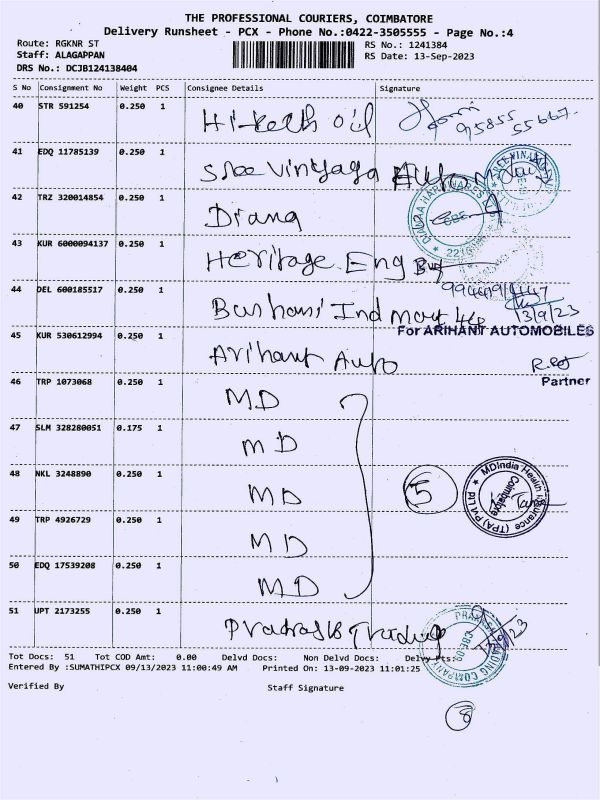 THE PROFESSIONAL COURIERS, COIMBATORE
Delivery Runsheet - PCX - Phone No.:0422-3505555 - Page No.:4
Route: RGKNR ST
RS No.: 1241384
Staff: ALAGAPPAN
RS Date: 13-Sep-2023
DRS No.: DCJB124138404
S No Consignment No Weight PCS Consignee Details Signature
40 STR 591254 0.250 1 Hi-tech oil
95855 55667
41 EDQ 11785139 0.250 1 Sree Vinyaga Auto
42 TRZ 320014854 0.250 1 Diana
43 KUR 6000094137 0.250 1 Heritage Eng
44 DEL 600185517 0.250 1 Bushani Ind
13/9/23
For ARIHANT AUTOMOBILES
45 KUR 530612994 0.250 1 Arihant Auto
Partner
46 TRP 1073068 0.250 1 MD
47 SLM 328280051 0.175 1 MD
48 NKL 3248890 0.250 1 MD
5
MDIndia Health Insurance (TPA) Pvt Ltd
Coimbatore
49 TRP 4926729 0.250 1 MD
50 EDQ 17539208 0.250 1 MD
51 UPT 2173255 0.250 1 Prakash Trading
Tot Docs: 51 Tot COD Amt: 0.00 Delvd Docs: Non Delvd Docs: Delvy Pts:
Entered By :SUMATHIPCX 09/13/2023 11:00:49 AM Printed On: 13-09-2023 11:01:25
Verified By Staff Signature
8